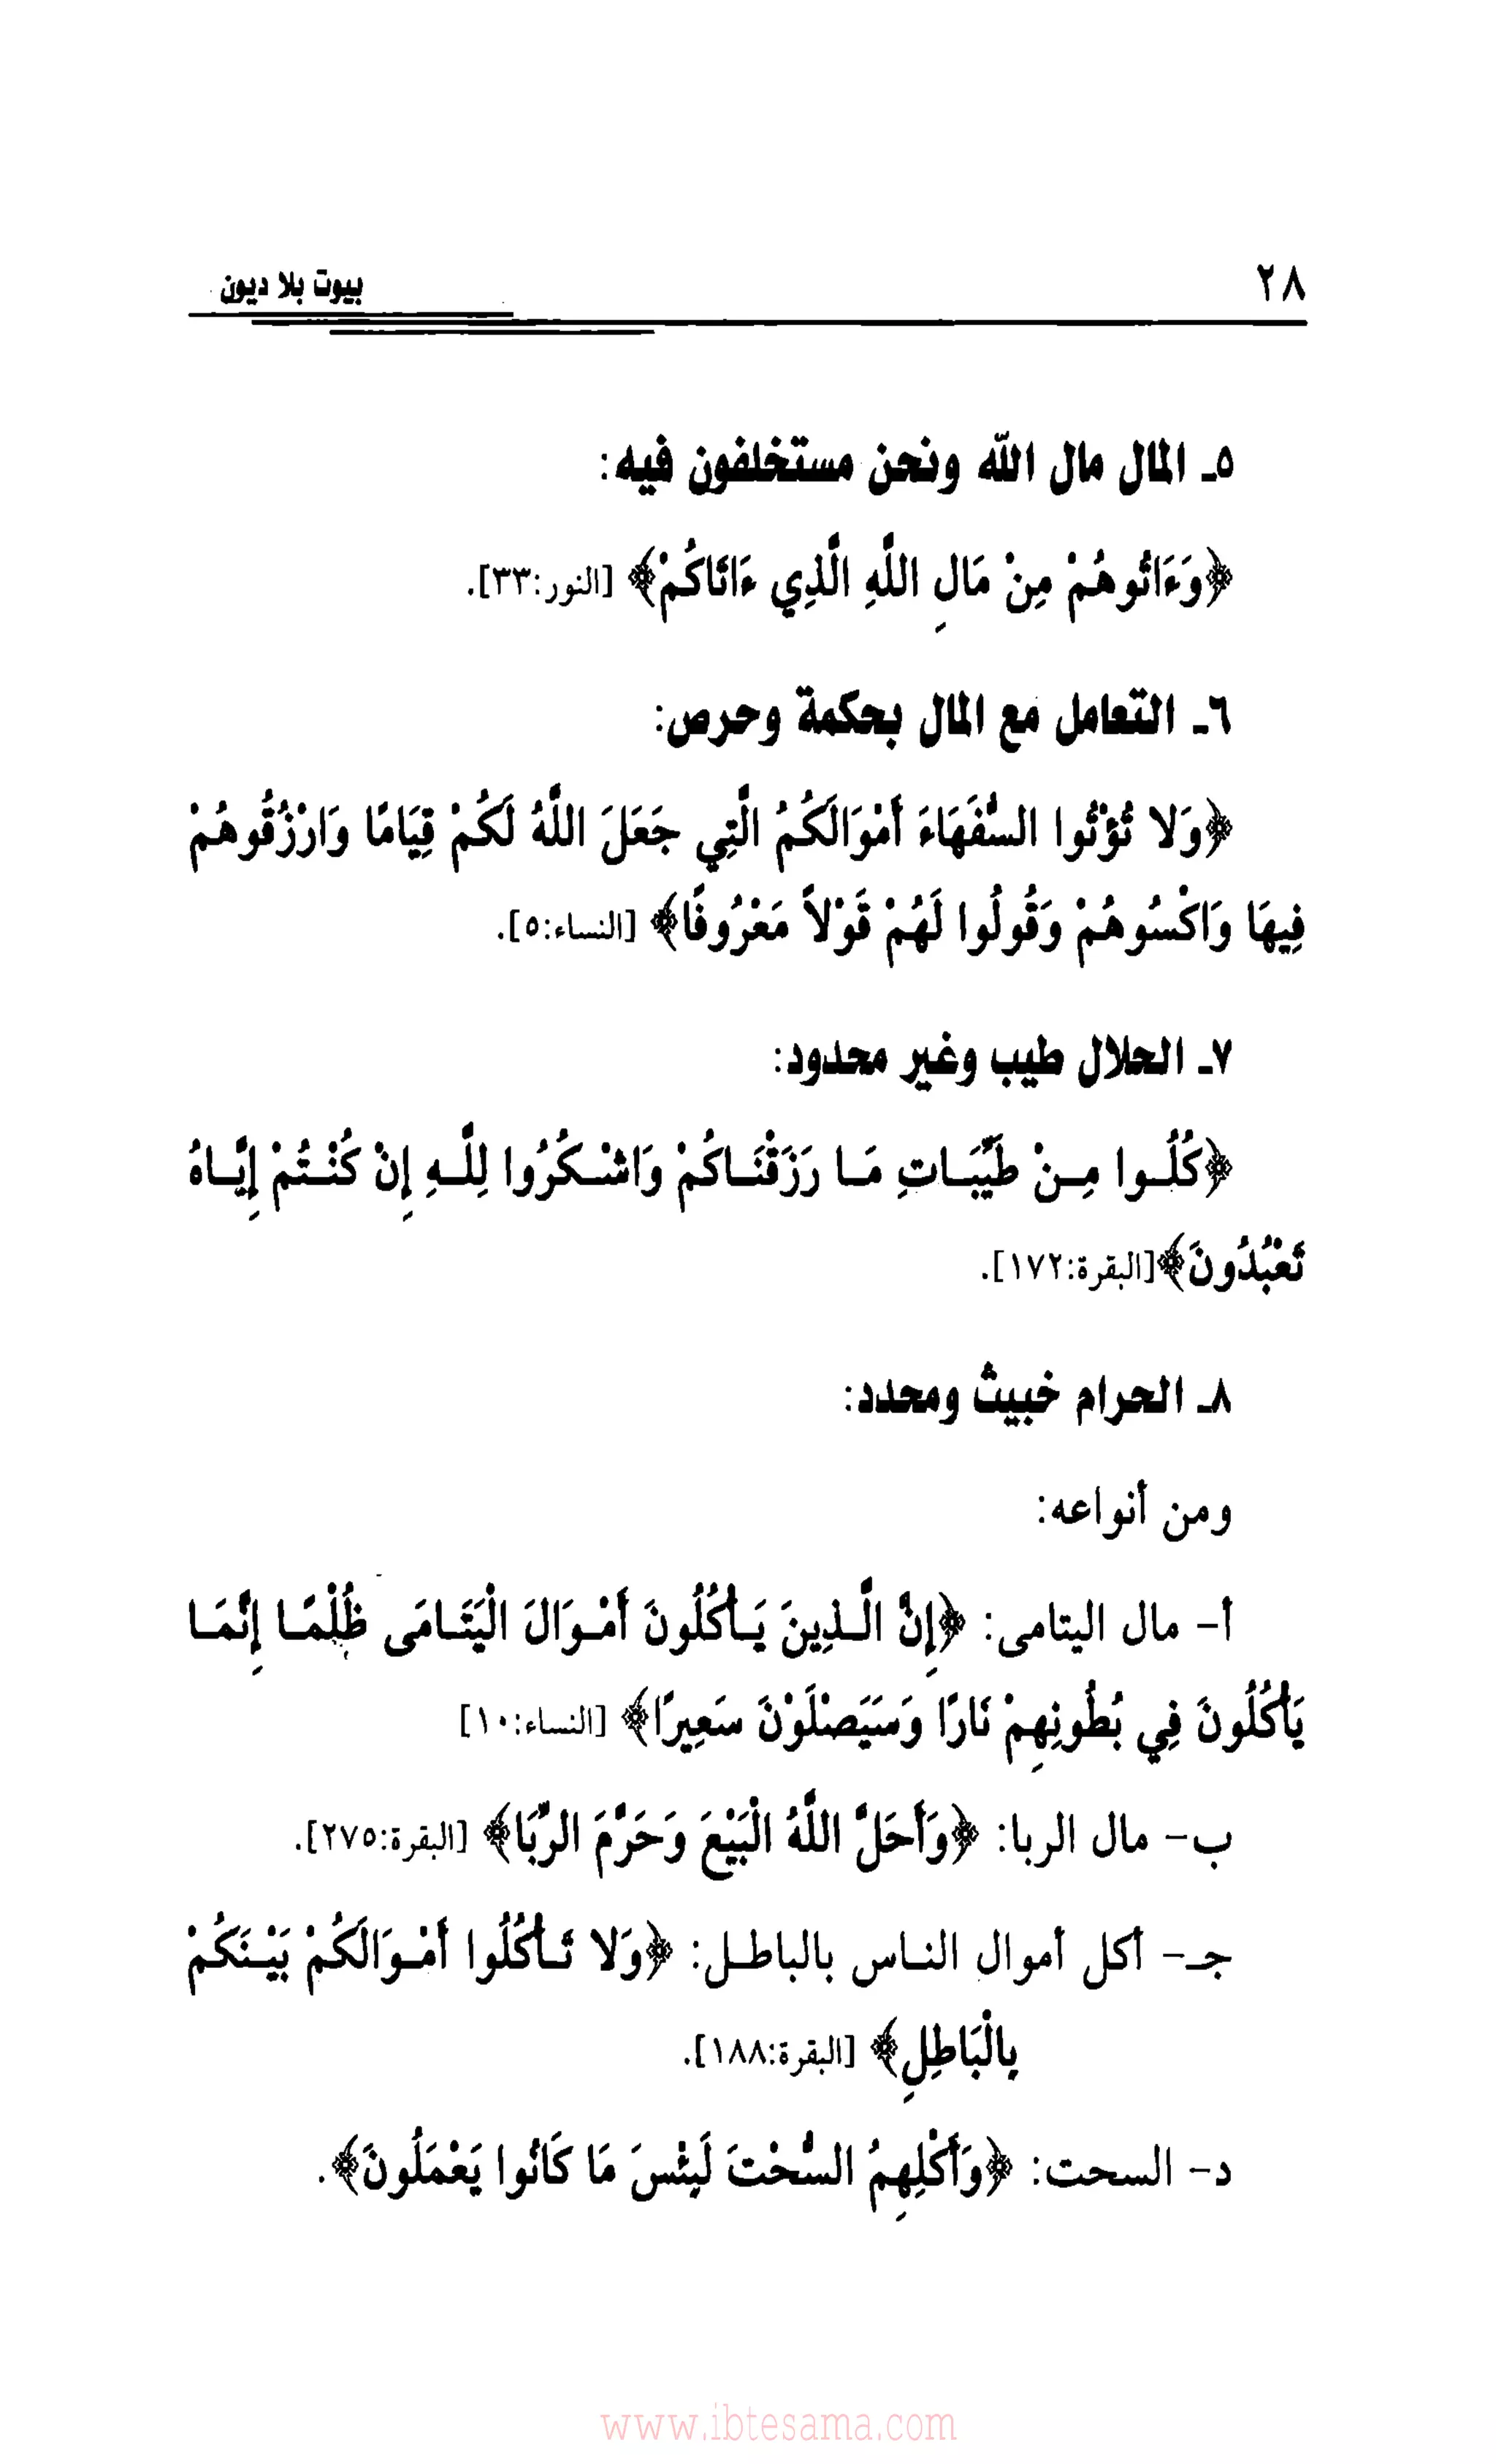 ٢٨ بيوت بلا ديون
٥ـ المال مال الله ونحن مستخلفون فيه:
﴿وَءَاتُوهُمْ مِنْ مَالِ اللَّهِ الَّذِي ءَاتَاكُمْ﴾ [النور:٣٣].
٦ـ التعامل مع المال بحكمة وحرص:
﴿وَلَا تُؤْتُوا السُّفَهَاءَ أَمْوَالَكُمُ الَّتِي جَعَلَ اللَّهُ لَكُمْ قِيَامًا وَارْزُقُوهُمْ
فِيهَا وَاكْسُوهُمْ وَقُولُوا لَهُمْ قَوْلاً مَعْرُوفًا﴾ [النساء:٥].
٧ـ الحلال طيب وغير محدود:
﴿كُلُـوا مِـنْ طَيِّبَـاتِ مَـا رَزَقْنَـاكُمْ وَاشْـكُرُوا لِلَّـهِ إِنْ كُنْـتُمْ إِيَّـاهُ
تَعْبُدُونَ﴾[البقرة:١٧٢].
٨ـ الحرام خبيث ومحدد:
ومن أنواعه:
أ- مال اليتامى: ﴿إِنَّ الَّـذِينَ يَـأْكُلُونَ أَمْـوَالَ الْيَتَـامَى ظُلْمًـا إِنَّمَـا
يَأْكُلُونَ فِي بُطُونِهِمْ نَارًا وَسَيَصْلَوْنَ سَعِيرًا﴾ [النساء:١٠]
ب- مال الربا: ﴿وَأَحَلَّ اللَّهُ الْبَيْعَ وَحَرَّمَ الرِّبَا﴾ [البقرة:٢٧٥].
جـ- أكل أموال النـاس بالباطـل: ﴿وَلَا تَـأْكُلُوا أَمْـوَالَكُمْ بَيْـنَكُمْ
بِالْبَاطِلِ﴾ [البقرة:١٨٨].
د- السحت: ﴿وَأَكْلِهِمُ السُّحْتَ لَبِئْسَ مَا كَانُوا يَعْمَلُونَ﴾.
www.ibtesama.com